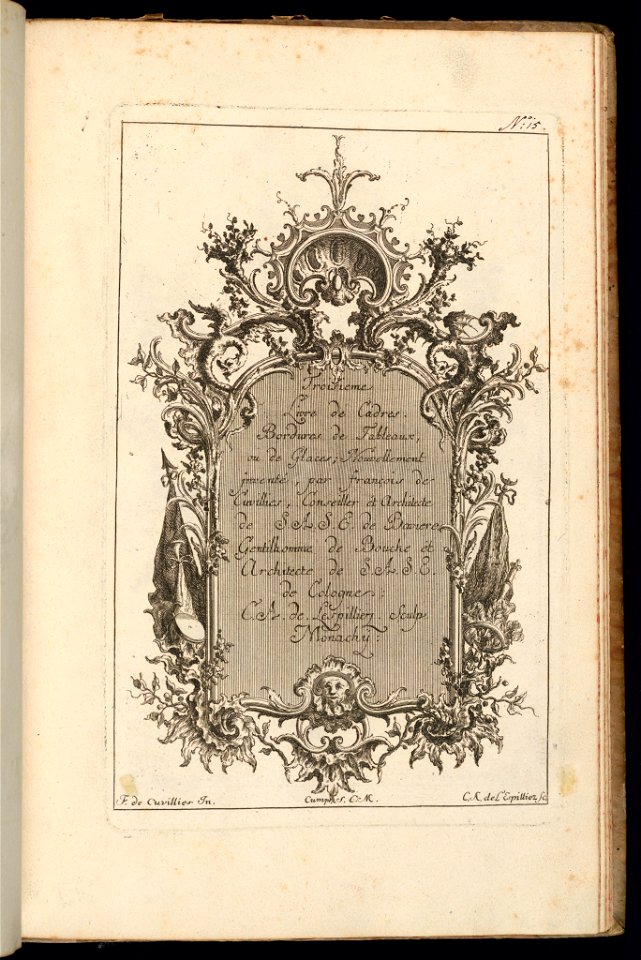 No: 15.
Troisieme
Livre de Cadres.
Bordures de Tableaux,
ou de Glaces; Nouvellement
inventé, par François de
Cuvilliés, Conseiller et Architecte
de S.A.S.E. de Baviere
Gentilhomme de Bouche et
Architecte de S.A.S.E.
de Cologne;
C.A. de Lespilliez. Sculp
Monachÿ.
F. de Cuvilliés In.
Cum pr. S. C. M.
C.A. de L'Espilliez, Sc.